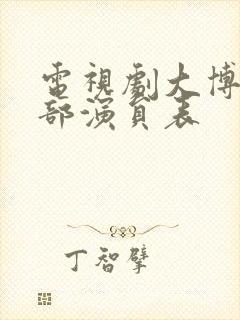 電視劇大博
部演員表
丁智擘